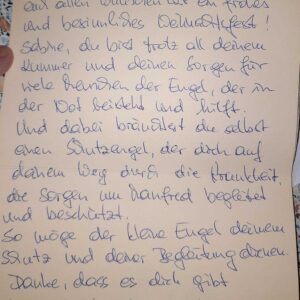 euch allen wünschen wir ein frohes
und besinnliches Weihnachtsfest!
Sabine, du bist trotz all deinem
Kummer und deinen Sorgen für
viele Menschen der Engel, der in
der Not beisteht und hilft.
Und dabei bräuchtest du selbst
einen Schutzengel, der dich auf
deinem Weg durch die Krankheit,
die Sorgen um Manfred begleitet
und beschützt.
So möge der kleine Engel deinem
Schutz und deiner Begleitung dienen.
Danke, dass es dich gibt